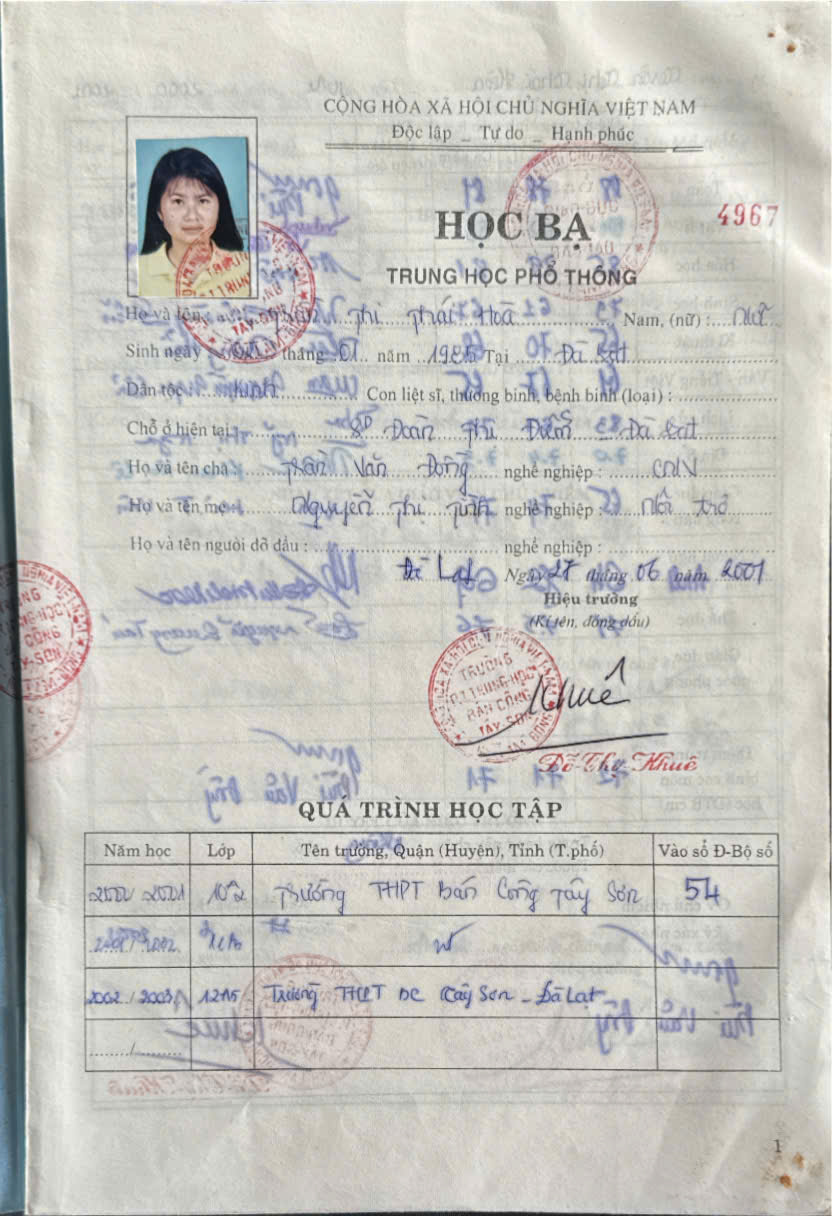 CỘNG HÒA XÃ HỘI CHỦ NGHĨA VIỆT NAM
Độc lập _ Tự do _ Hạnh phúc
HỌC BẠ
4967
TRUNG HỌC PHỔ THÔNG
Họ và tên Thị Thái Hoà Nam, (nữ) : Nữ
Sinh ngày tháng 01 năm 1985 Tại Đà Lạt
Dân tộc : kinh Con liệt sĩ, thương binh, bệnh binh (loại) :
Chỗ ở hiện tại : 8D Đoàn Thị Điểm Đà Lạt
Họ và tên cha : Văn Đông nghề nghiệp : CNV
Họ và tên mẹ : Nguyễn Thị nghề nghiệp : Nội trợ
Họ và tên người đỡ đầu : nghề nghiệp :
Đà Lạt Ngày 27 tháng 06 năm 2001
Hiệu trưởng
(Kí tên, đóng dấu)
TRƯỜNG
P.T TRUNG-HỌC
BÁN CÔNG
TÂY-SƠN
Khuê
Đỗ-Thọ-Khuê
QUÁ TRÌNH HỌC TẬP
Năm học Lớp Tên trường, Quận (Huyện), Tỉnh (T.phố) Vào sổ Đ-Bộ số
2000/2001 Trường THPT Bán Công Tây Sơn 54
2001/2002
2002/2003 12A5 Trường THPT BC Tây Sơn - Đà Lạt
1